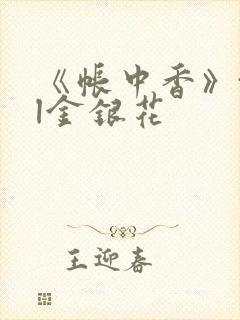 《帐中香》
|金银花
王迎春